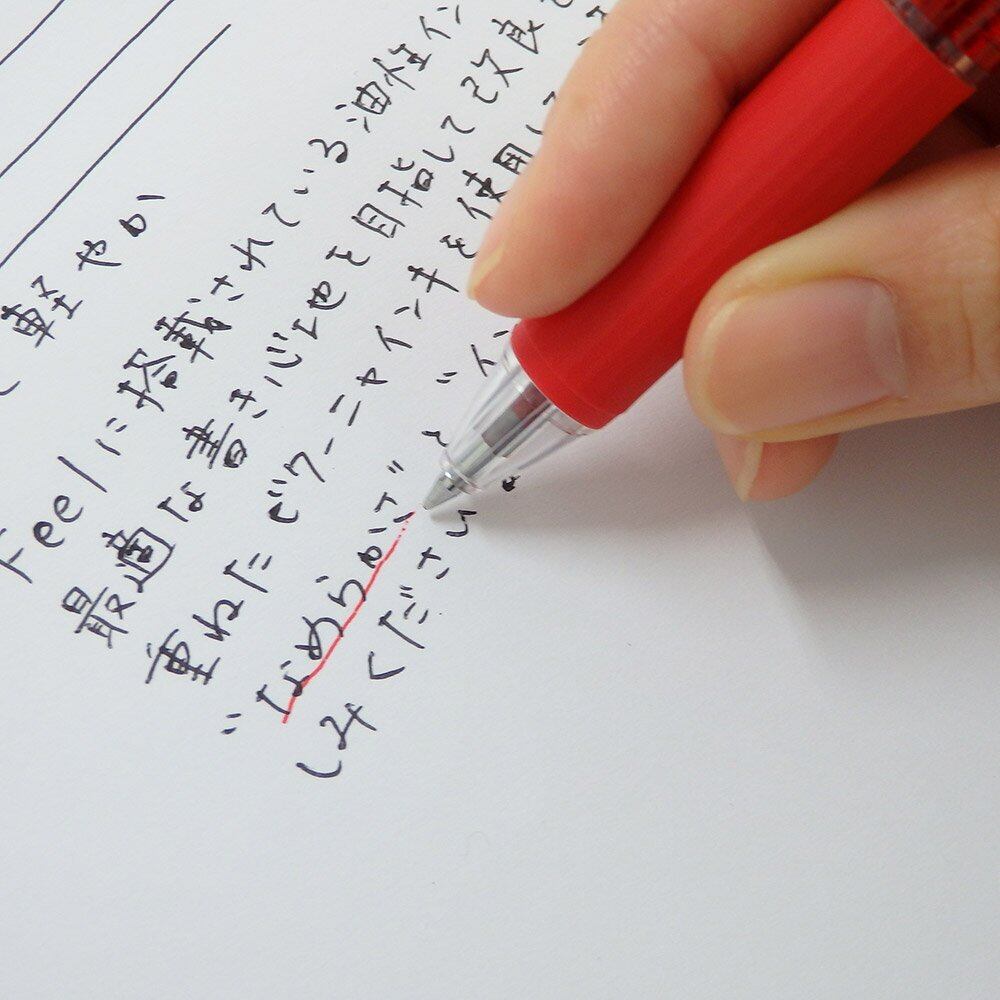 軽やか
Feelに搭載されている油性イン
最適な書き心地を目指して改良
重ねたビクーニャインキを使用し
"なめらかさ"と"イン
しみください